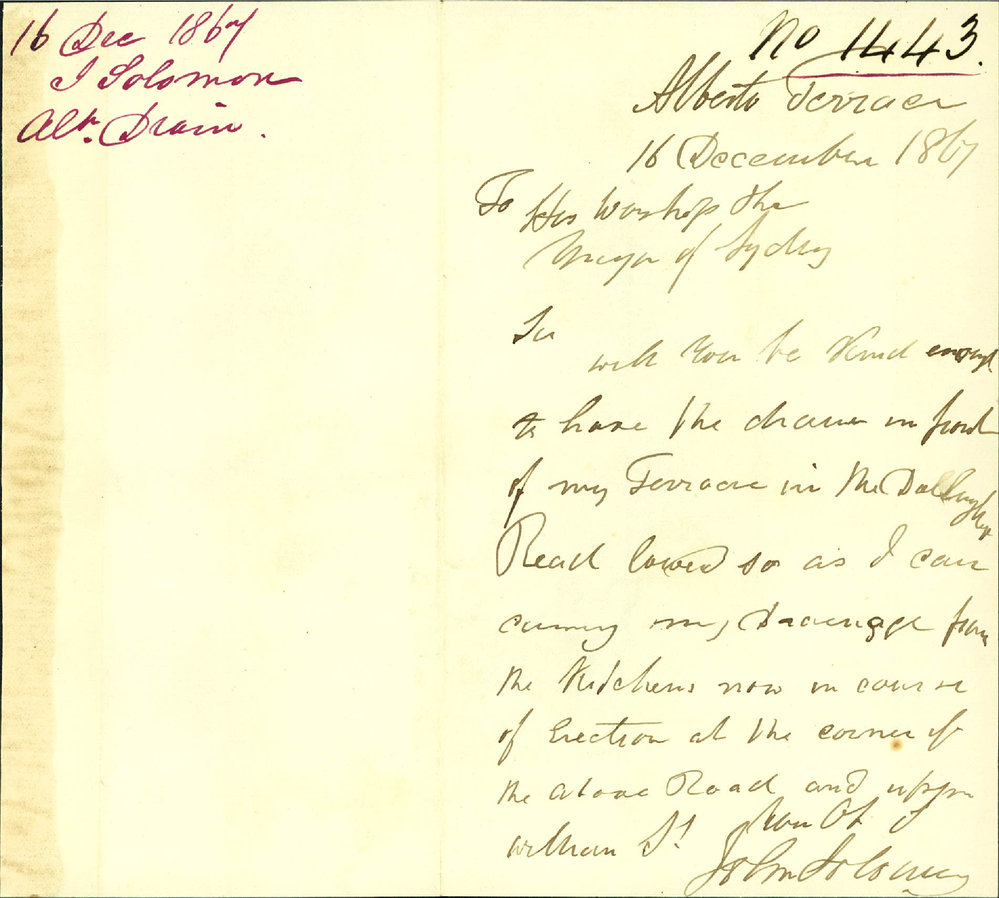 16 Dec 1867
J Solomon
Altn. Drain.
No 1443.
Alberto Terrace
16 December 1867
To His Worship the
Mayor of Sydney
Sir
will you be Kind enough
to have the drain in front
of my Terrace in the
Road lowed so as I can
carry my Drainage from
the Kidchens now in course
of Erection at the corner of
the above Road and upper
william St. your Ob S
John Solomon